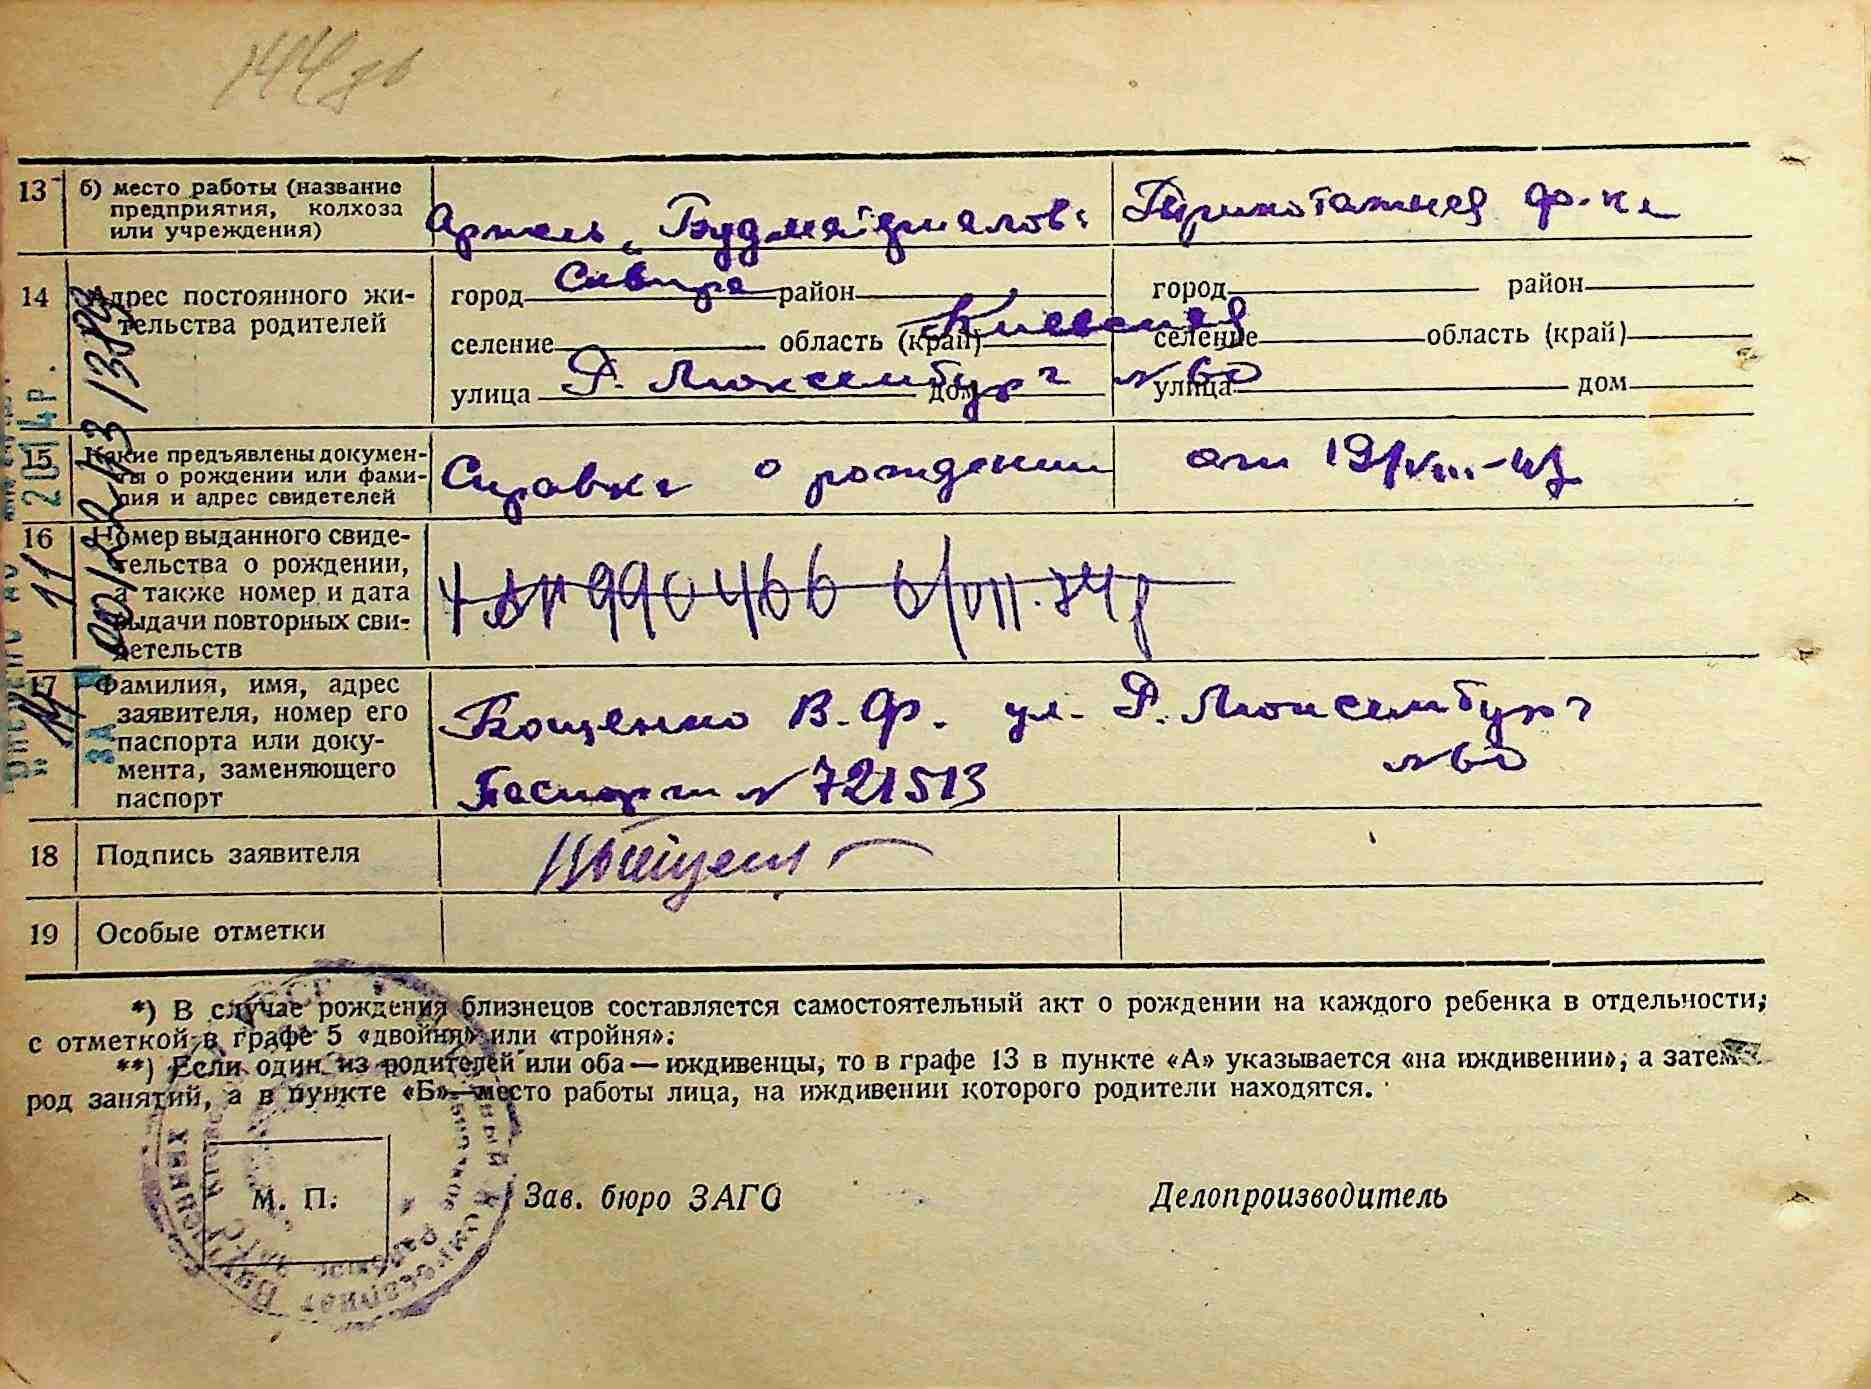 144
13 б) место работы (название предприятия, колхоза или учреждения) Артель „Будматериалов" Трикотажная ф-ка
14 Адрес постоянного жительства родителей
город Сквира район город район
селение область (край) Киевская селение область (край)
улица Р. Люксембург дом №60 улица дом
15 Какие предъявлены документы о рождении или фамилия и адрес свидетелей Справка о рождении от 19/VIII-47
16 Номер выданного свидетельства о рождении, а также номер и дата выдачи повторных свидетельств 990466
17 Фамилия, имя, адрес заявителя, номер его паспорта или документа, заменяющего паспорт Бощенко В. Ф. ул. Р. Люксембург №60
Паспорт № 721513
18 Подпись заявителя
19 Особые отметки
*) В случае рождения близнецов составляется самостоятельный акт о рождении на каждого ребенка в отдельности,
с отметкой в графе 5 «двойня» или «тройня».
**) Если один из родителей или оба — иждивенцы, то в графе 13 в пункте «А» указывается «на иждивении», а затем
род занятий, а в пункте «Б» — место работы лица, на иждивении которого родители находятся.
М. П. Зав. бюро ЗАГС Делопроизводитель